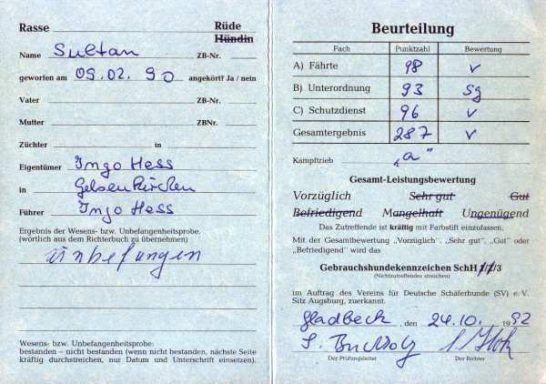 Rasse Rüde
Hündin
Name Sultan ZB-Nr.
geworfen am 09.02.90 angekört? Ja / nein
Vater ZB-Nr.
Mutter ZBNr.
Züchter in
Eigentümer Ingo Hess
in Gelsenkirchen
Führer Ingo Hess
Ergebnis der Wesens- bzw. Unbefangenheitsprobe.
(wörtlich aus dem Richterbuch zu übernehmen)
unbefangen
Wesens- bzw. Unbefangenheitsprobe:
bestanden – nicht bestanden (wenn nicht bestanden, nächste Seite
kräftig durchstreichen, nur Datum und Unterschrift einsetzen).
Beurteilung
Fach Punktzahl Bewertung
A) Fährte 98 V
B) Unterordnung 93 Sg
C) Schutzdienst 96 V
Gesamtergebnis 287 V
Kampftrieb „a"
Gesamt-Leistungsbewertung
Vorzüglich Sehr gut Gut
Befriedigend Mangelhaft Ungenügend
Das Zutreffende ist kräftig mit Farbstift einzufassen.
Mit der Gesamtbewertung „Vorzüglich", „Sehr gut", „Gut" oder
„Befriedigend" wird das
Gebrauchshundekennzeichen SchH 1/2/3
(Nichtzutreffendes streichen)
im Auftrag des Vereins für Deutsche Schäferhunde (SV) e.V.
Sitz Augsburg, zuerkannt.
Gladbeck, den 24.10. 1992
Der Prüfungsleiter Der Richter